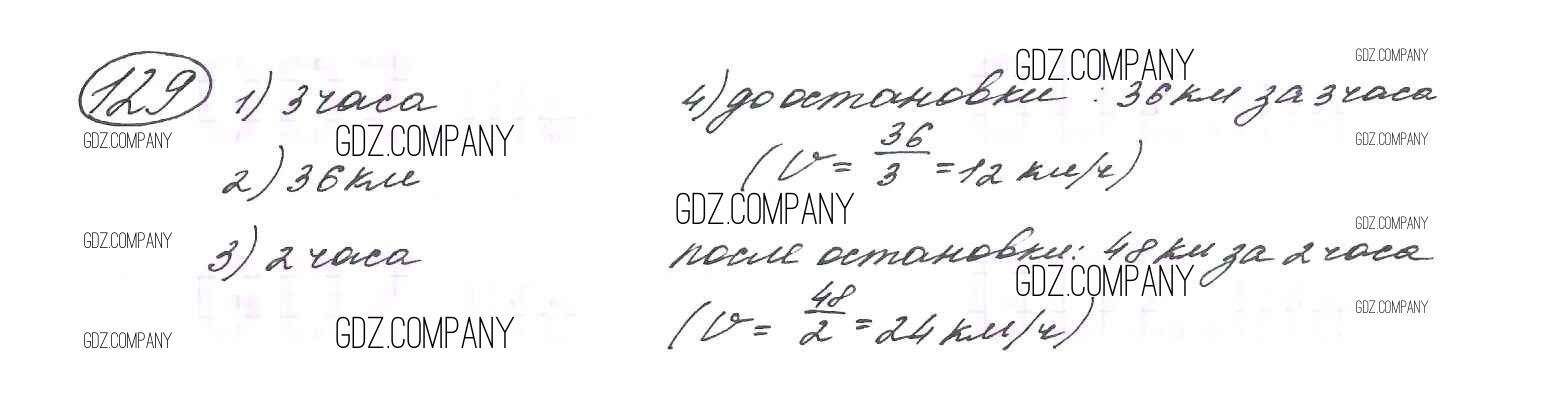 129 1) 3 часа
2) 36 км
3) 2 часа
4) до остановки : 36 км за 3 часа
(V = 36/3 = 12 км/ч)
после остановки: 48 км за 2 часа
(V = 48/2 = 24 км/ч)
GDZ.COMPANY
GDZ.COMPANY
GDZ.COMPANY
GDZ.COMPANY
GDZ.COMPANY
GDZ.COMPANY
GDZ.COMPANY
GDZ.COMPANY
GDZ.COMPANY
GDZ.COMPANY
GDZ.COMPANY
GDZ.COMPANY